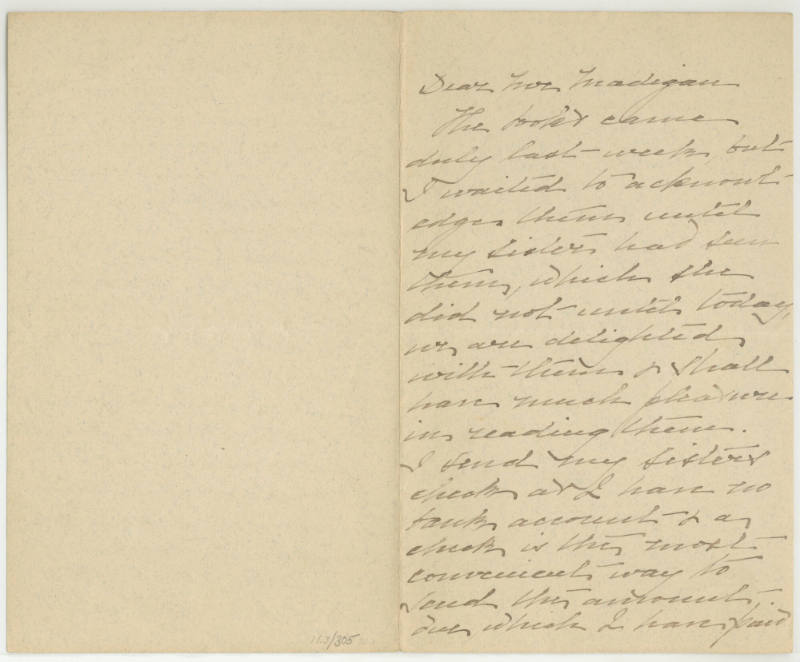 Dear Mr Madigan
The books came
duly last week, but
I waited to acknowl-
edge them until
my sister had seen
them, which she
did not until today,
we are delighted
with them & shall
have much pleasure
in reading them.
I send my sisters
check as I have no
bank account & a
check is the most
convenient way to
send the amount.
which I have paid
113/305